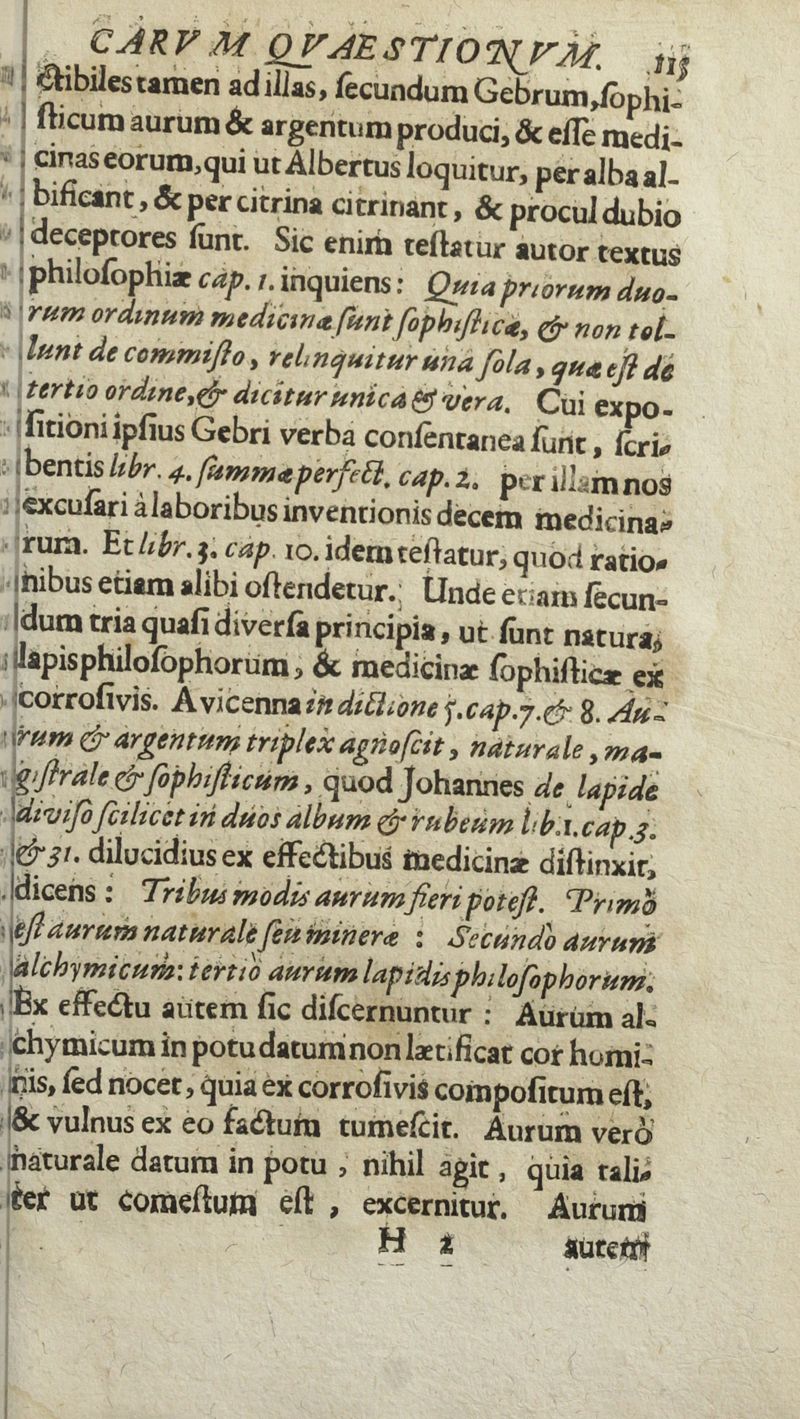 CARVM QVAESTIONVM. 115
ctibiles tamen ad illas, ſecundum Gebrum, ſophi-
ſticum aurum & argentum produci, & eſſe medi-
cinas eorum, qui ut Albertus loquitur, per alba al-
bificant, & per citrina citrinant, & procul dubio
deceptores ſunt. Sic enim teſtatur autor textus
philoſophiæ cap. 1. inquiens: Quia priorum duo-
rum ordinum medicinæ ſunt ſophiſticæ, & non tol-
lunt de commiſto, relinquitur una ſola, quæ eſt de
tertio ordine, & dicitur unica & vera. Cui expo-
ſitioni ipſius Gebri verba conſentanea ſunt, ſcri-
bentis libr. 4. ſummæ perfect. cap. 2. per illam nos
excuſari à laboribus inventionis decem medicina-
rum. Et libr. 3. cap. 10. idem teſtatur, quod ratio-
nibus etiam alibi oſtendetur. Unde etiam ſecun-
dum tria quaſi diverſa principia, ut ſunt natura,
lapis philoſophorum, & medicinæ ſophiſticæ ex
corroſivis. Avicenna in dictione 5. cap. 7. & 8. Au-
rum & argentum triplex agnoſcit, naturale, ma-
giſtrale & ſophiſticum, quod Johannes de lapide
diviſo ſcilicet in duos album & rubeum lib. 1. cap. 3.
& 31. dilucidius ex effectibus medicinæ diſtinxit,
dicens: Tribus modis aurum fieri poteſt. Primò
eſt aurum naturale ſeu mineræ : Secundò aurum
alchymicum: tertiò aurum lapidis philoſophorum.
Ex effectu autem ſic diſcernuntur : Aurum al-
chymicum in potu datum non lætificat cor homi-
nis, ſed nocet, quia ex corroſivis compoſitum eſt,
& vulnus ex eo factum tumeſcit. Aurum verò
naturale datum in potu, nihil agit, quia tali-
ter ut comeſtum eſt, excernitur. Aurum
H 2 autem